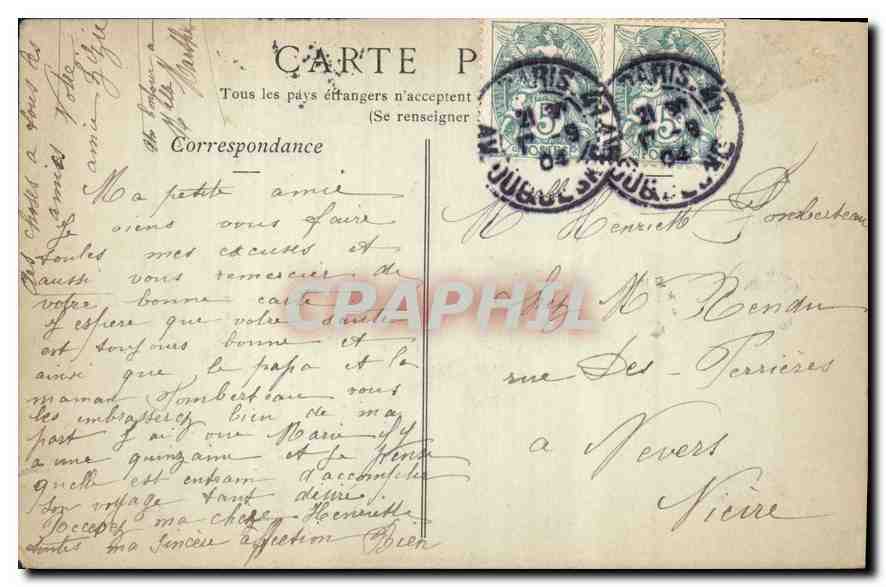 CARTE P
Tous les pays étrangers n'acceptent
(Se renseigner
Correspondance
Ma petite amie
Je viens vous faire
toutes mes excuses et
aussi vous remercier de
votre bonne carte
J espere que votre santé
est toujours bonne et
ainsi que le papa et la
maman Fomberteau vous
les embrasserez bien de ma
part J ai vue Marie il y
a une quinzaine et Je pense
quelle est entrain d'accomplir
son voyage tant désiré
Accepez ma chere Henriette
toutes ma sincère affection Bien
des choses a tous les
amies Votre
amie
un bonjour a
Mlle
Marthe
Mlle Henriette Fomberteau
Chez M Rendu
rue Des Perrières
a Nevers
Nièvre
PARIS
5
POSTES
04
PARIS
5
04
CRAPHIL